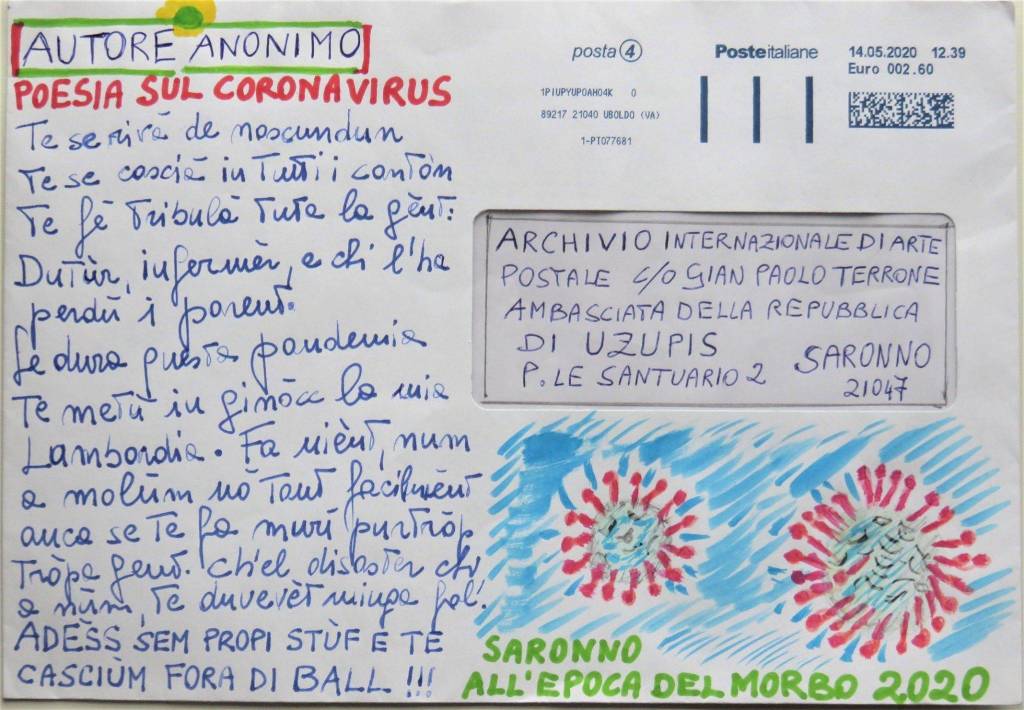 AUTORE ANONIMO
POESIA SUL CORONAVIRUS
Te se rivà de noscundun
Te se cascià in Tutti i cantòn
Te fè Tribulà Tuta la gènt:
Dutùr, infermèr, e chi l'ha
perdù i parent.
Se dura questa pandemia
Te metù in ginòcc la mia
Lambordia. Fa nient, num
a molùm nò Tant facilmènt
anca se Te fa murì purtròp
Tròpa gent. Ch'el disaster chi
a nùm, Te duvevèt minga fal'.
ADÈSS SEM PROPI STÙF E TE
CASCIÙM FORA DI BALL !!!
posta 4
Posteitaliane
14.05.2020 12.39
Euro 002.60
1PIUPYUPOAH04K 0
89217 21040 UBOLDO (VA)
1-PT077681
ARCHIVIO INTERNAZIONALE DI ARTE
POSTALE C/O GIAN PAOLO TERRONE
AMBASCIATA DELLA REPUBBLICA
DI UZUPIS
P.LE SANTUARIO 2 SARONNO
21047
SARONNO
ALL'EPOCA DEL MORBO 2020